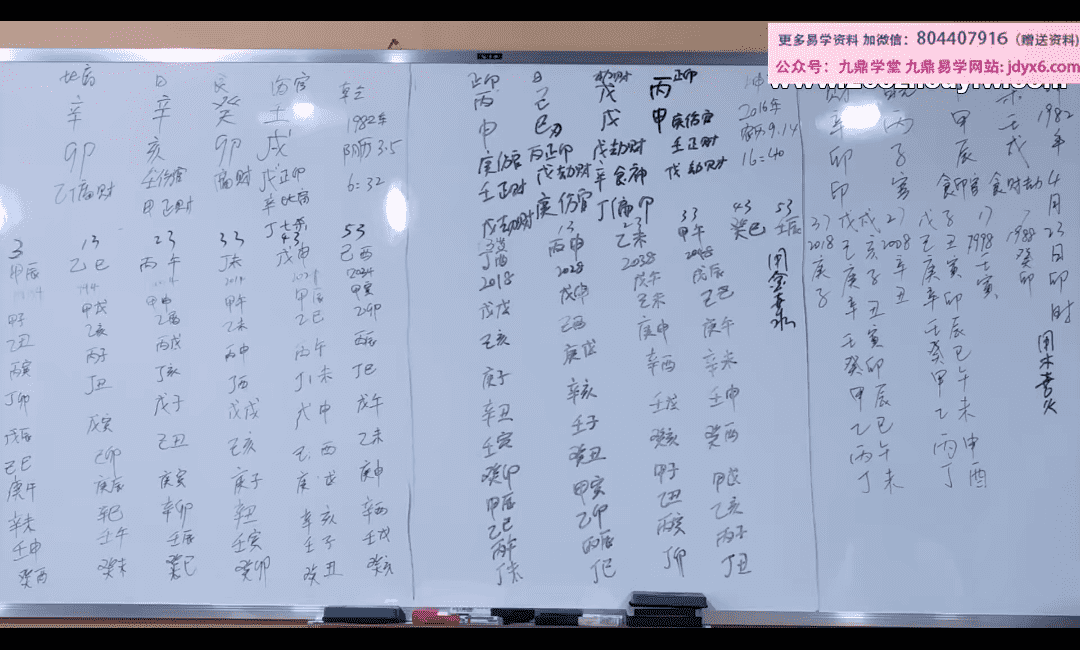 更多易学资料 加微信：804407916（赠送资料）
公众号：九鼎学堂 九鼎易学网站：jdyx6.com
比肩 日 伤官
辛 辛 癸 壬 1982年
卯 亥 卯 戌 阴历3.5
乙偏财 壬伤官 偏财 戊正印 6:32
甲正财 辛比肩
丁七杀
3 13 23 33 43 53
甲辰 乙巳 丙午 丁未 戊申 己酉
甲子 甲戌 甲申 甲午 甲辰 甲寅
乙丑 乙亥 乙酉 乙未 乙巳 乙卯
丙寅 丙子 丙戌 丙申 丙午 丙辰
丁卯 丁丑 丁亥 丁酉 丁未 丁巳
戊辰 戊寅 戊子 戊戌 戊申 戊午
己巳 己卯 己丑 己亥 己酉 己未
庚午 庚辰 庚寅 庚子 庚戌 庚申
辛未 辛巳 辛卯 辛丑 辛亥 辛酉
壬申 壬午 壬辰 壬寅 壬子 壬戌
癸酉 癸未 癸巳 癸卯 癸丑 癸亥
正印 日 劫财 正印
丙 己 戊 丙 2016年
申 巳 戊 申 农历9.14
庚伤官 丙正印 戊劫财 庚伤官 16:40
壬正财 戊劫财 辛食神 壬正财
戊劫财 庚伤官 丁偏印 戊劫财
13 23 33 43 53
丁酉 丙申 乙未 甲午 癸巳 壬辰
2018 2028 2038 2048
用金喜水
戊戌 戊申 戊午 戊辰
己亥 己酉 己未 己巳
庚子 庚戌 庚申 庚午
辛丑 辛亥 辛酉 辛未
壬寅 壬子 壬戌 壬申
癸卯 癸丑 癸亥 癸酉
甲辰 甲寅 甲子 甲戌
乙巳 乙卯 乙丑 乙亥
丙午 丙辰 丙寅 丙子
丁未 丁巳 丁卯 丁丑
1982年4月23日卯时
用木喜火
辛 丙 甲 壬
卯 子 辰 戌
印 官 食印官 食财劫
37 27 17 7
2018 2008 1998 1988
庚子 辛丑 壬寅 癸卯
戊戌 戊子
己亥 己丑
庚子 庚寅
辛丑 辛卯
壬寅 壬辰
癸卯 癸巳
甲辰 甲午
乙巳 乙未
丙午 丙申
丁未 丁酉